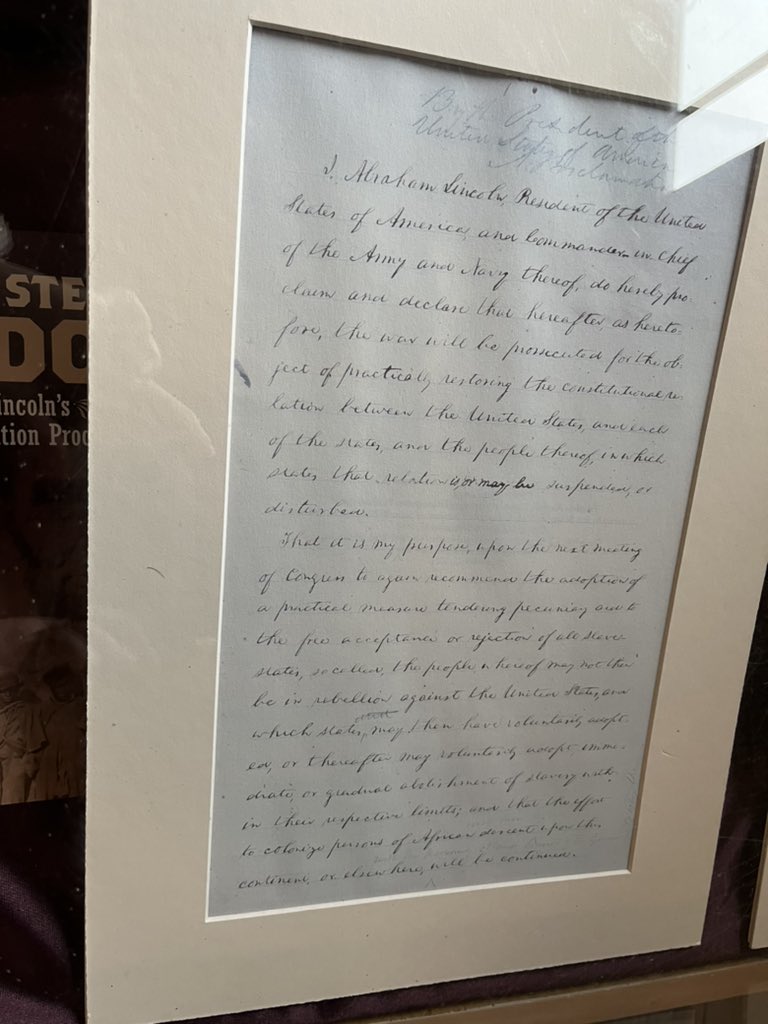 By the President of the
United States of America
A Proclamation
I, Abraham Lincoln, President of the United
States of America, and Commander-in-Chief
of the Army and Navy thereof, do hereby pro-
claim and declare that hereafter, as hereto-
fore, the war will be prosecuted for the ob-
ject of practically restoring the constitutional re-
lation between the United States, and each
of the states, and the people thereof, in which
states that relation is, or may be suspended, or
disturbed.
That it is my purpose, upon the next meeting
of Congress to again recommend the adoption of
a practical measure tendering pecuniary aid to
the free acceptance or rejection of all slave-
states, so called, the people whereof may not then
be in rebellion against the United States, and
which states, may then have voluntarily adopt-
ed, or thereafter may voluntarily adopt, imme-
diate, or gradual abolishment of slavery with-
in their respective limits; and that the effort
to colonize persons of African descent upon this
continent, or elsewhere, will be continued.
STE
DO
incoln's
tion Proc